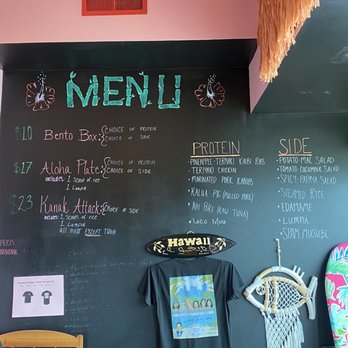 MENU
$10 Bento Box CHOICE OF PROTEIN
CHOICE OF SIDE
$17 Aloha Plate CHOICE OF PROTEIN
CHOICE OF SIDE
INCLUDES: 1 SCOOP OF RICE
1 LUMPIA
$23 Kanak Attack CHOICE OF SIDE
INCLUDES: 1 SCOOP OF RICE
1 LUMPIA
ALL MEAT EXCEPT TUNA
PROTEIN
- PINEAPPLE-TERIYAKI KALBI RIBS
- TERIYAKI CHICKEN
- MARINATED PORK KABOBS
- KALUA PIG (PULLED PORK)
- AHI POKE (RAW TUNA)
- LOCO MOCO
SIDE
- POTATO MAC SALAD
- TOMATO CUCUMBER SALAD
- SPICY PAPAYA SALAD
- STEAMED RICE
- EDAMAME
- LUMPIA
- SPAM MUSUBI
Hawaii